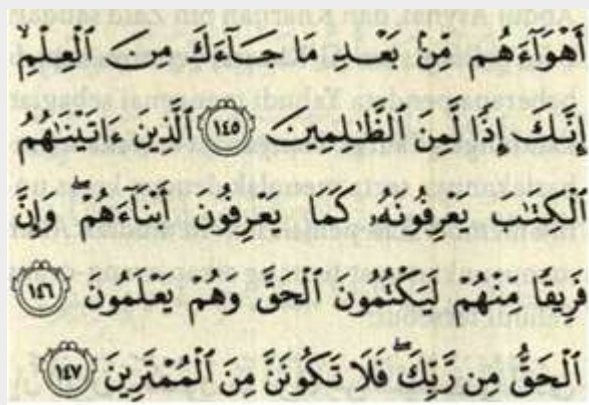 أَهْوَآءَهُم مِّنۢ بَعْدِ مَا جَآءَكَ مِنَ ٱلْعِلْمِۙ
إِنَّكَ إِذًا لَّمِنَ ٱلظَّٰلِمِينَ ١٤٥ ٱلَّذِينَ ءَاتَيْنَٰهُمُ
ٱلْكِتَٰبَ يَعْرِفُونَهُۥ كَمَا يَعْرِفُونَ أَبْنَآءَهُمْۖ وَإِنَّ
فَرِيقًا مِّنْهُمْ لَيَكْتُمُونَ ٱلْحَقَّ وَهُمْ يَعْلَمُونَ ١٤٦
ٱلْحَقُّ مِن رَّبِّكَۖ فَلَا تَكُونَنَّ مِنَ ٱلْمُمْتَرِينَ ١٤٧